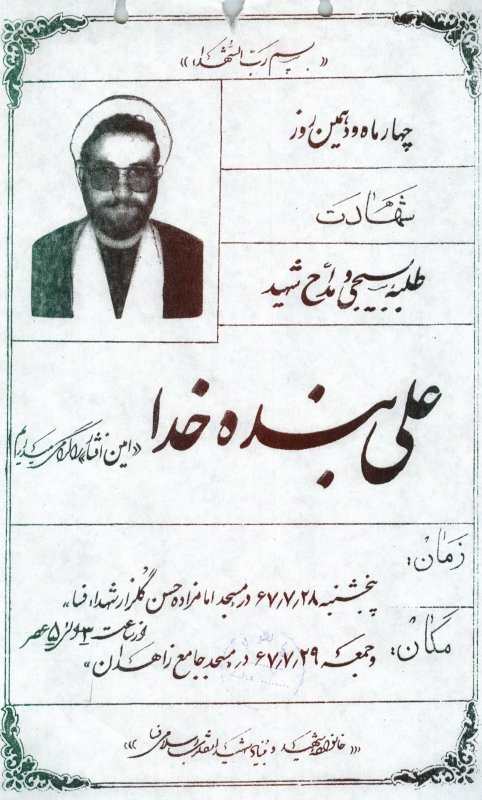 «بسم ربّ الشهداء»
چهارماه و دهمین روز
شهادت
طلبه بسیجی و مدّاح شهید
علی بنده خدا
«امین افشار» را گرامی میداریم
زمان:
پنجشنبه ۶۷٫۷٫۲۸ در مسجد امامزاده حسن گلزار شهداء
از ساعت ۳ الی ۵ عصر
مکان:
و جمعه ۶۷٫۷٫۲۹ در مسجد جامع زاهدان»
«خانواده شهید و بنیاد شهید انقلاب اسلامی»